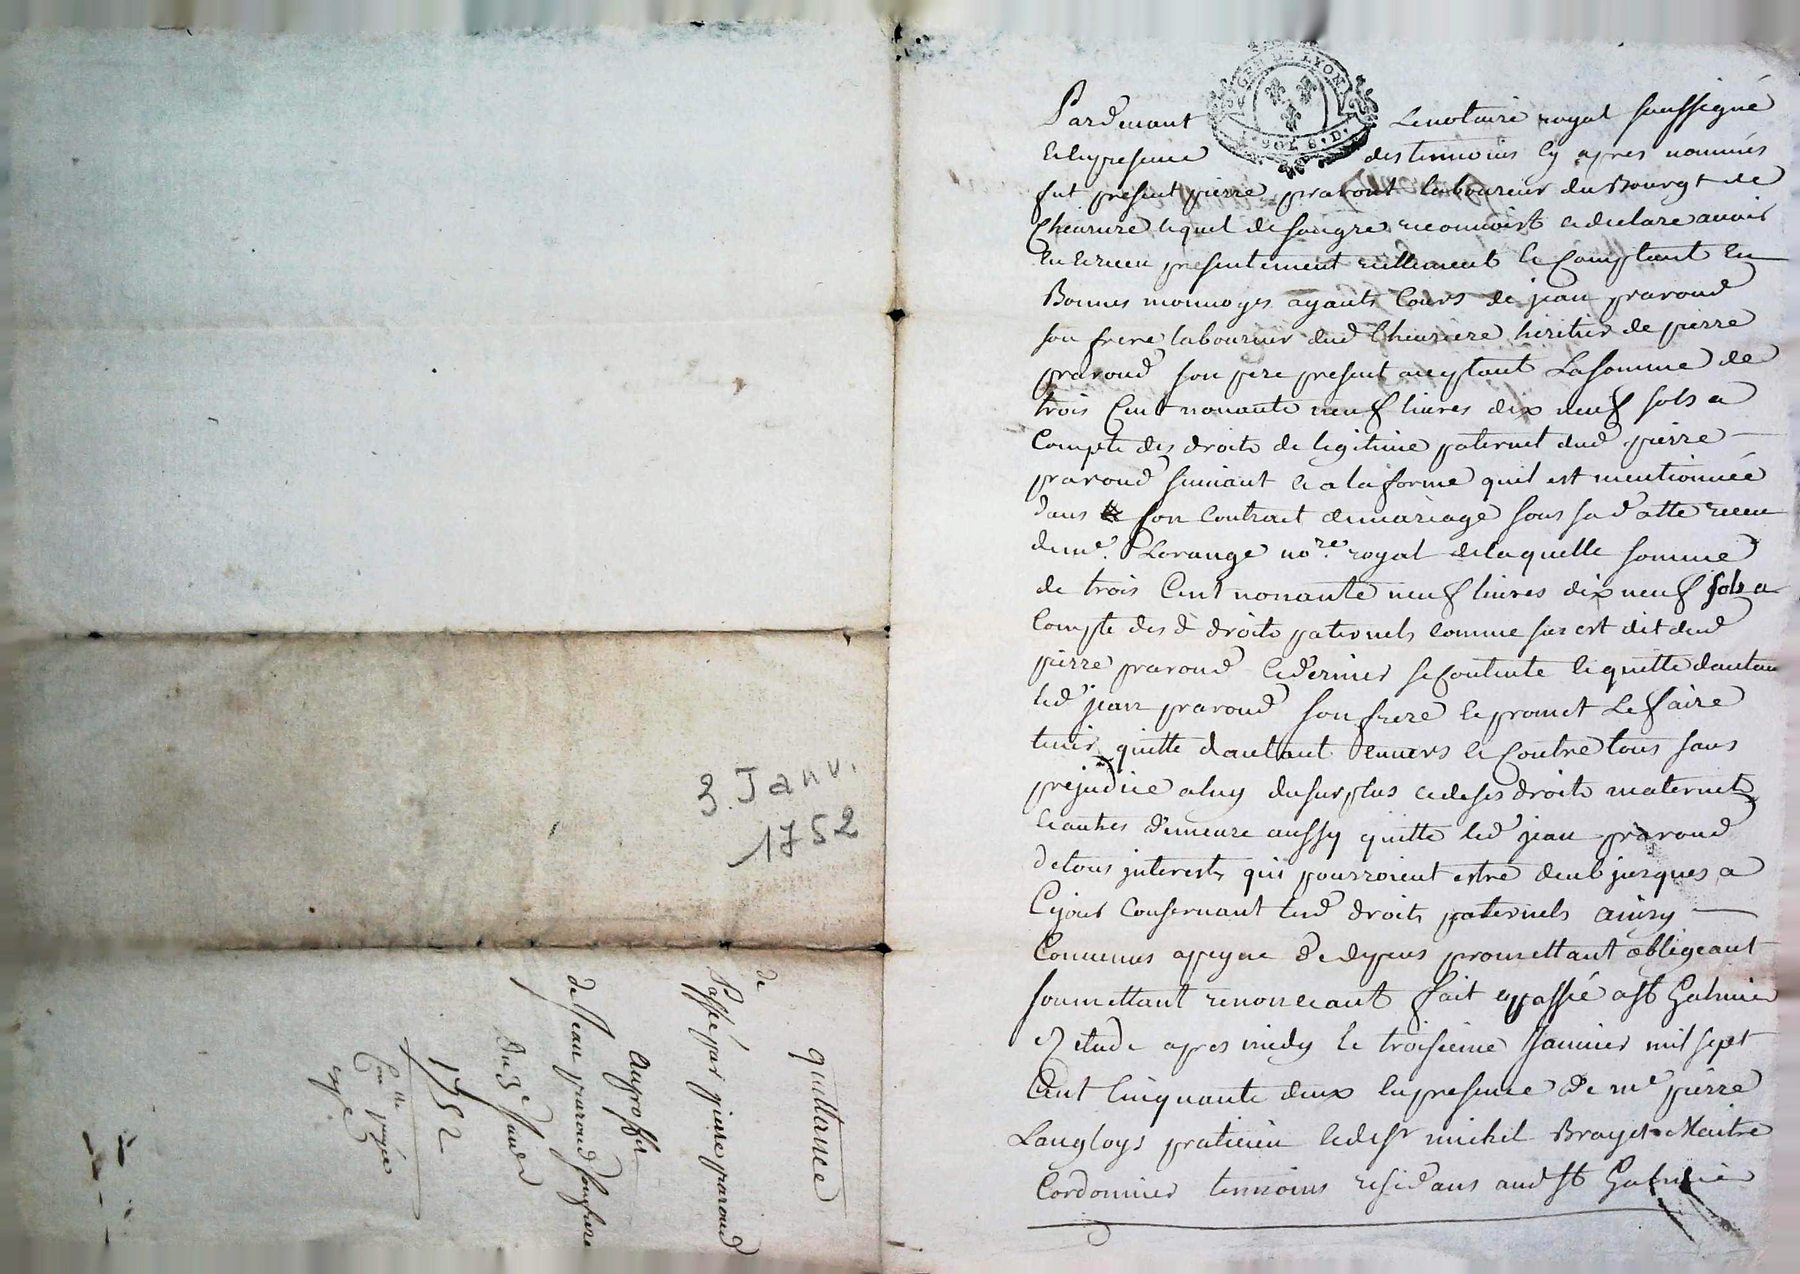 GEN. DE LYON
1. SOL 6. D.
Pardevant Le notaire royal soussigné
et en presence des temoins cy apres nommés
fut present pierre pravout laboureur du Bourgt de
Cheurure lequel de son gre reconnoist et declare avoir
eu et receu presentement reellement et Comptant en
Bonnes monnoyes ayants Cours de jean praroud
son frere laboureur dud Cheuriere heritier de pierre
praroud son pere present acceptant La somme de
trois Cent nonante neuf livres dix neuf sols a
Compte des droits de legitime paternel dud pierre
praroud suivant et a la forme quil est mentionnée
dans son Contract de mariage sous sa datte receu
de me. Lorange nore. royal de laquelle somme
de trois Cent nonante neuf livres dix neuf sols a
Compte des d droits paternels comme sus est dit dud
pierre praroud ce dernier se Contente et quitte dautan
led jean praroud son frere et promet Le faire
tenir quitte dautant envers et Contre tous sans
prejudice a luy du surplus et de ses droits maternels
et autres demeure aussy quitte led jean praroud
de tous interests qui pourroient estre deub jusques a
Ce jour Conservant sesd droits paternels ainsy
Convenus a peyne de depens promettant obligeant
soumettant renonceant fait et passé a St Galmier
Etude apres midy le troisieme Janvier mil sept
Cent Cinquante deux en presence de me pierre
Langloys praticien et de sr michel Brayet Maitre
Cordonnier temoins residans aud St Galmier
3. Janv.
1752
quittance
de
Passé par pierre praroud
au proffit
de Jean praroud son frere
Du 3e Janvier
1752
Con.lle payée
expe.